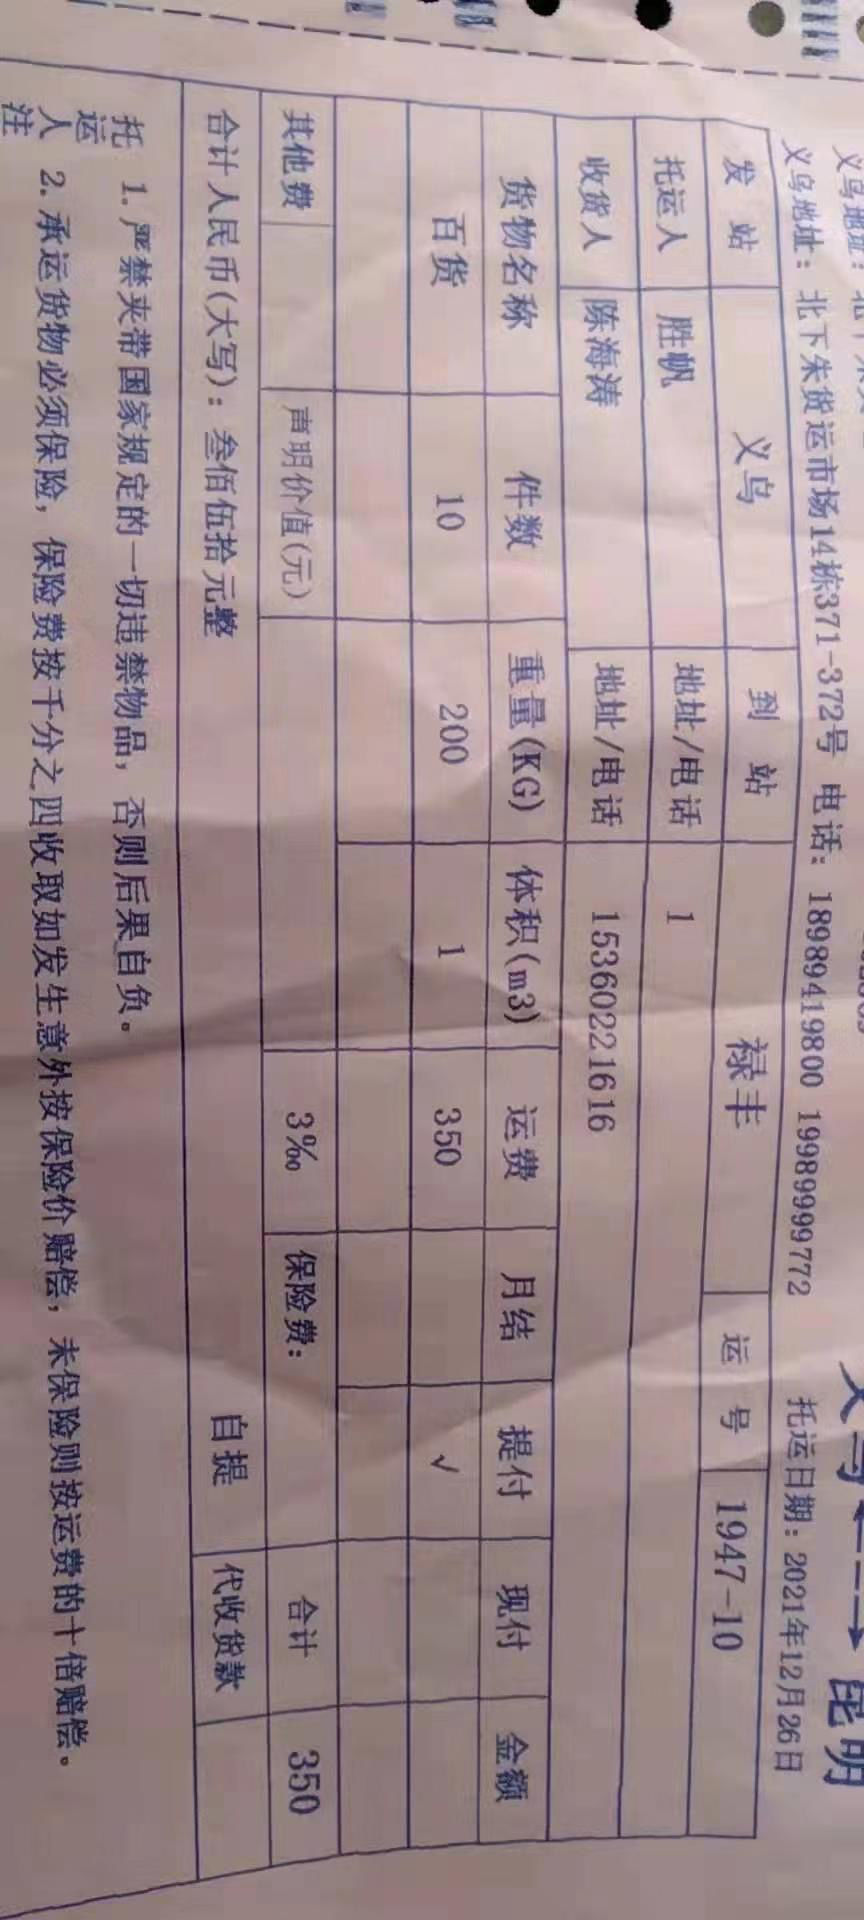 义乌←--→昆明
义乌地址：北下朱货运市场14栋371-372号 电话：18989419800 19989999772 托运日期：2021年12月26日
发 站 义乌 到 站 禄丰 运 号 1947-10
托运人 胜帆 地址/电话 1
收货人 陈海涛 地址/电话 15360221616
货物名称 件数 重量(KG) 体积(m3) 运费 月结 提付 现付 金额
百货 10 200 1 350 √
其他费 声明价值(元) 3‰ 保险费： 合计 350
合计人民币(大写)：叁佰伍拾元整 自提 代收货款
托 1.严禁夹带国家规定的一切违禁物品，否则后果自负。
运
人 2.承运货物必须保险，保险费按千分之四收取如发生意外按保险价赔偿，未保险则按运费的十倍赔偿。
注